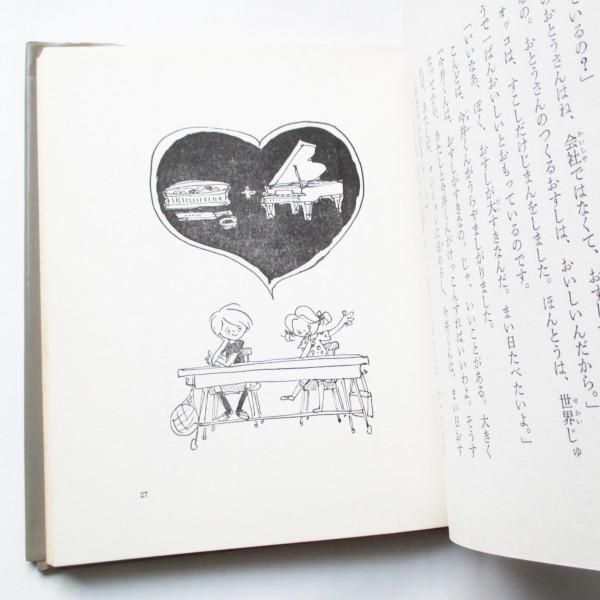 ているの？」
のおとうさんはね、会社ではなくて、おすし
なの。おとうさんのつくるおすしは、おいしいんだから。」
オッコは、すこしだけじまんをしました。ほんとうは、世界じゅ
うで一ばんおいしいとおもっているのです。
「いいなあ、ぼく、おすしが大すきなんだ。まい日たべたいよ。」
こんどは、今井くんがうらやましがりました。
「今井くんは、おすしがすきなの。じゃ、いいことがある。大きく
なってから、あたしと今井くんがけっこんすればいいわよ。そうす
27